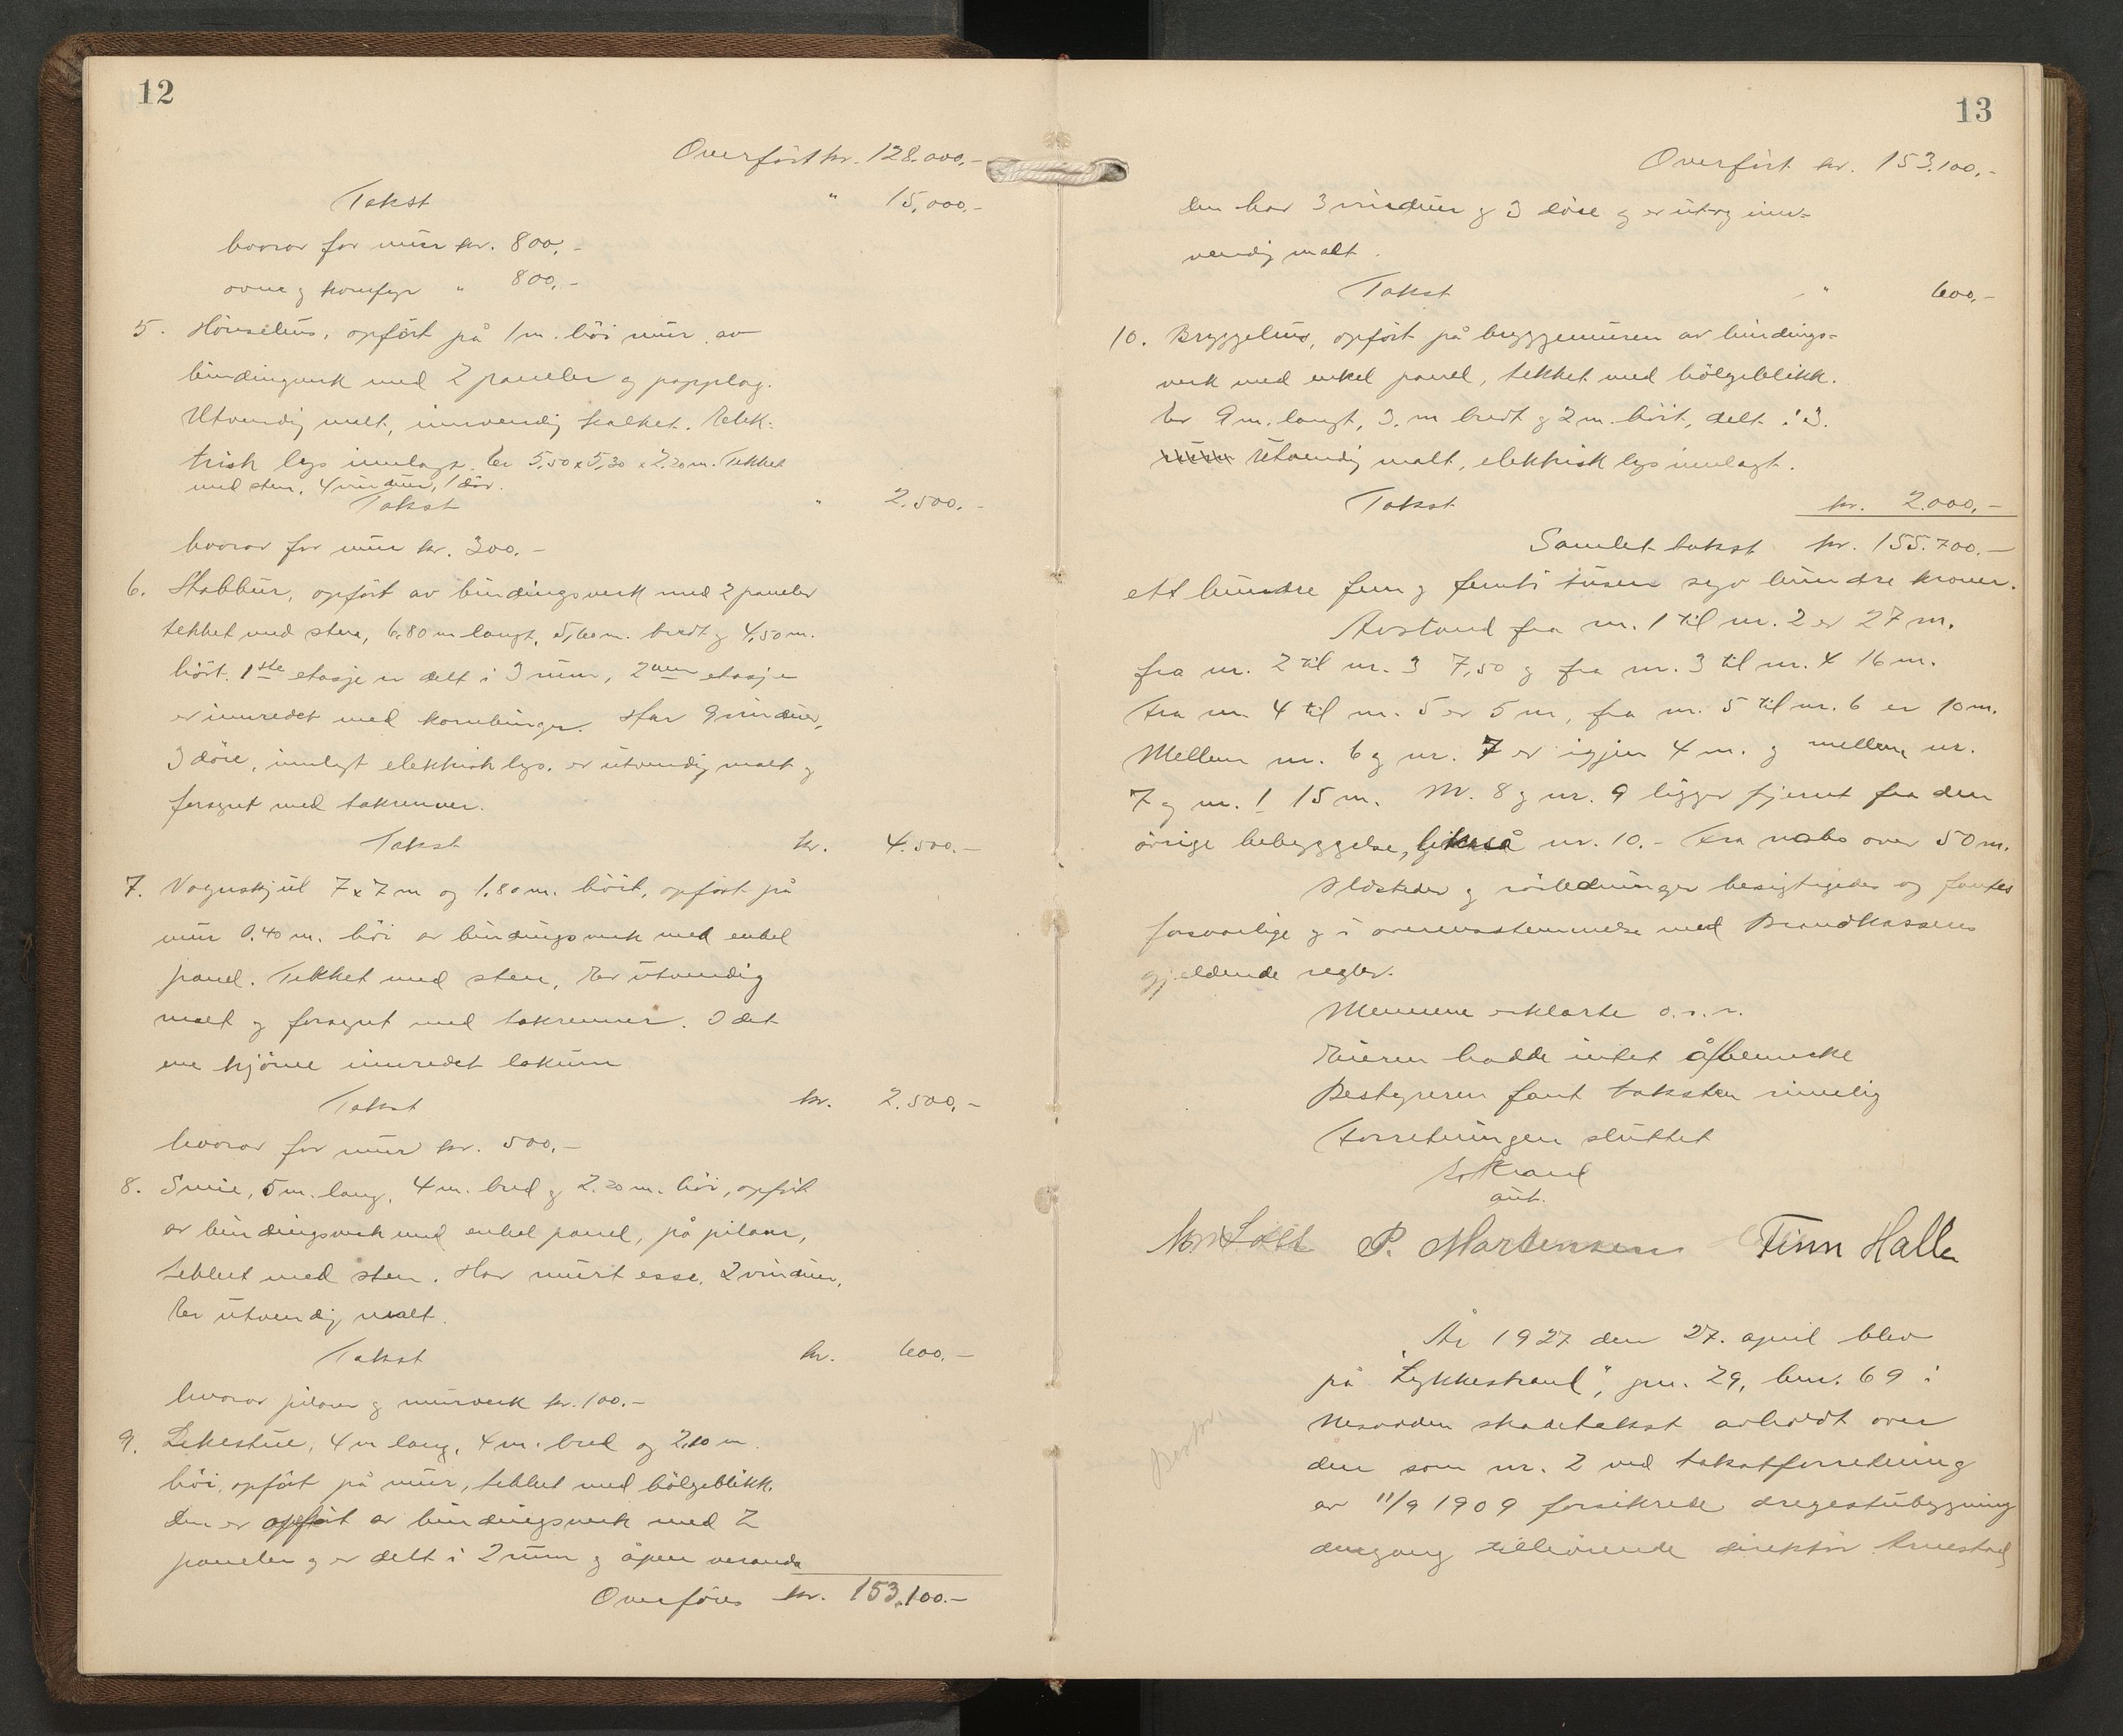 12
Overført kr. 128.000,-
Takst " 15,000,-
hvorav for mur kr. 800,-
ovne og komfyr " 800,-
5. Hönsehus, opfört på 1 m. höi mur av
bindingverk med 2 paneler og papplag.
Utvendig malt, innvendig kalket. Elek-
trisk lys innlagt. Er 5,50 x 5,30 x 2,20 m. Tekket
med sten, 4 vinduer, 1 dör.
Takst " 2.500.-
hvorav for mur kr. 300.-
6. Stabbur, opfört av bindingsverk med 2 paneler
tekket med sten, 6,80 m langt, 5,60 m. bredt og 4,50 m.
höit. 1ste etasje er delt i 3 rum, 2nen etasje
er innredet med kornbinger. Har 9 vinduer,
3 döre, innlagt elektrisk lys. er utvendig malt og
forsynt med takrenner.
Takst kr. 4.500.-
7. Vognskjul 7 x 7 m og 1,80 m. höit, opfört på
mur 0.40 m. höi av bindingsverk med enkel
panel. Tekket med sten, Er utvendig
malt og forsynt med takrenner. I det
ene hjörne innredet lokum
Takst kr. 2.500,-
hvorav for mur kr. 500,-
8. Smie, 5 m. lang, 4 m. bred og 2.20 m. höi, opfört
av bindingsverk med enkel panel, på pilarer,
tekket med sten. Har murt esse, 2 vinduer,
Er utvendig malt.
Takst kr. 600.-
hvorav pilarer og murverk kr. 100.-
9. Lekestue, 4 m lang, 4 m. bred og 2,10 m.
höi, opfört på mur, tekket med bölgeblikk.
Den er opfört av bindingsverk med 2
paneler og er delt i 2 rum og åpen veranda
Overföres kr. 153.100.-
13
Overfört kr. 153.100,-
Den har 3 vinduer og 3 döre og er ut- og inn-
vendig malt.
Takst " 600,-
10. Bryggehus, opfört på bryggemuren av bindings-
verk med enkel panel, tekket med bölgeblikk.
Er 9 m. langt, 3. m bredt og 2 m. höit, delt i 3.
Utvendig malt, elektrisk lys innlagt.
Takst kr. 2.000,-
Samlet takst kr. 155.700.-
ett hundre fem og femti tusen syv hundre kroner.
Avstand fra nr. 1 til nr. 2 er 27 m.
fra nr. 2 til nr. 3 7,50 og fra nr. 3 til nr. 4 16 m.
Fra nr 4 til nr. 5 er 5 m, fra nr. 5 til nr. 6 er 10 m.
Mellem nr. 6 og nr. 7 er igjen 4 m. og mellem nr.
7 og nr. 1 15 m. Nr. 8 og nr. 9 ligger fjernt fra den
övrige bebyggelse, likeså nr. 10.- Fra nabo over 50 m.
Ildsteder og rörledninger besigtigedes og fantes
forsvarlige og i overensstemmelse med Brandkassens
gjeldende regler.
Mennene erklærte o.s.v.
Eieren hadde intet å bemerke
Bestyreren fant taksten rimelig
Forretningen sluttet
aut.
P. Martensen Finn Halle
År 1927 den 27. april blev
på "Lykkestrand", gnr. 29, bnr. 69 i
Nesodden skadetakst avholdt over
den som nr. 2 ved takstforretning
av 11/9 1909 forsikrede drengestubygning
dengang tilhörende direktör Arnestad